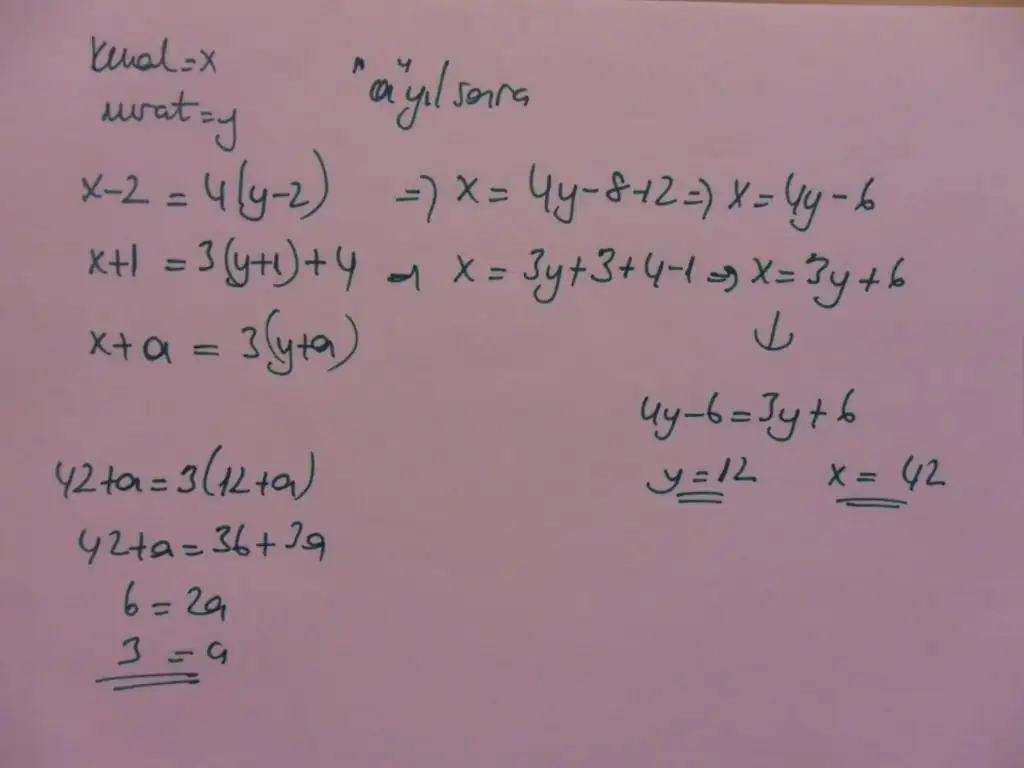 Kemal=x
murat=y
"a" yıl sonra
x-2 = 4(y-2) => x = 4y-8+2 => x = 4y-6
x+1 = 3(y+1)+4 → x = 3y+3+4-1 => x = 3y+6
x+a = 3(y+a) ↓
4y-6=3y+6
y=12 x= 42
42+a=3(12+a)
42+a=36+3a
6 = 2a
3 = a